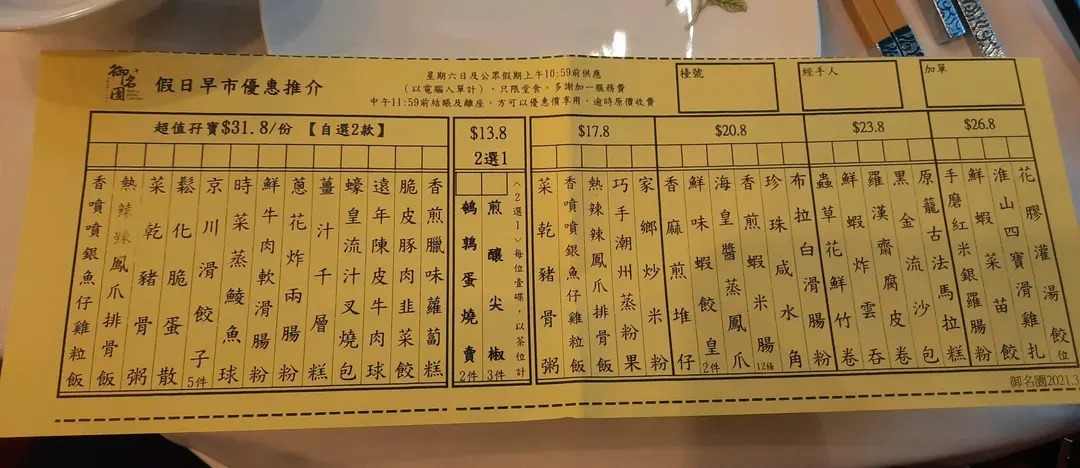 御名園
假日早市優惠推介
星期六日及公眾假期上午10:59前供應
(以電腦入單計),只限堂食,多謝加一服務費
中午11:59前結賬及離座,方可以優惠價享用,逾時原價收費
檯號
經手人
加單
超值孖寶$31.8/份 【自選2款】
香噴噴銀魚仔雞粒飯
熱辣辣鳳爪排骨飯
菜乾豬骨粥
鬆化脆蛋散
京川滑餃子5件
時菜蒸鯪魚球
鮮牛肉軟滑腸粉
蔥花炸兩腸粉
薑汁千層糕
蠔皇流汁叉燒包
遠年陳皮牛肉球
脆皮豚肉韭菜餃
香煎臘味蘿蔔糕
$13.8
2選1
鵪鶉蛋燒賣2件
煎釀尖椒3件
<2選1>每位壹碟,以茶位計
$17.8
菜乾豬骨粥
香噴噴銀魚仔雞粒飯
熱辣辣鳳爪排骨飯
巧手潮州蒸粉果
家鄉炒米粉
$20.8
香麻煎堆仔
鮮味蝦餃皇2件
海皇醬蒸鳳爪
香煎蝦米腸12條
珍珠咸水角
布拉白滑腸粉
$23.8
蟲草花鮮竹卷
鮮蝦炸雲吞
羅漢齋腐皮卷
黑金流沙包
原籠古法馬拉糕
$26.8
手磨紅米銀羅腸粉
鮮蝦菜苗餃
淮山四寶滑雞扎
花膠灌湯餃位
御名園2021.3